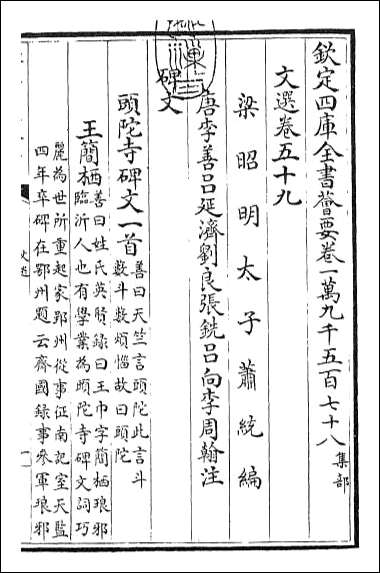 欽定四庫全書薈要卷一萬九千五百七十八 集部
文選卷五十九
梁昭明太子蕭統編
唐李善呂延濟劉良張銑呂向李周翰注
碑文
頭陀寺碑文一首 善曰天竺言頭陀此言斗
數斗數煩惱故曰頭陀
王簡栖 善曰姓氏英賢錄曰王巾字簡栖琅邪
臨沂人也有學業為頭陀寺碑文詞巧
麗為世所重起家郢州從事征南記室天監
四年卒碑在鄂州題云齊國錄事參軍琅邪